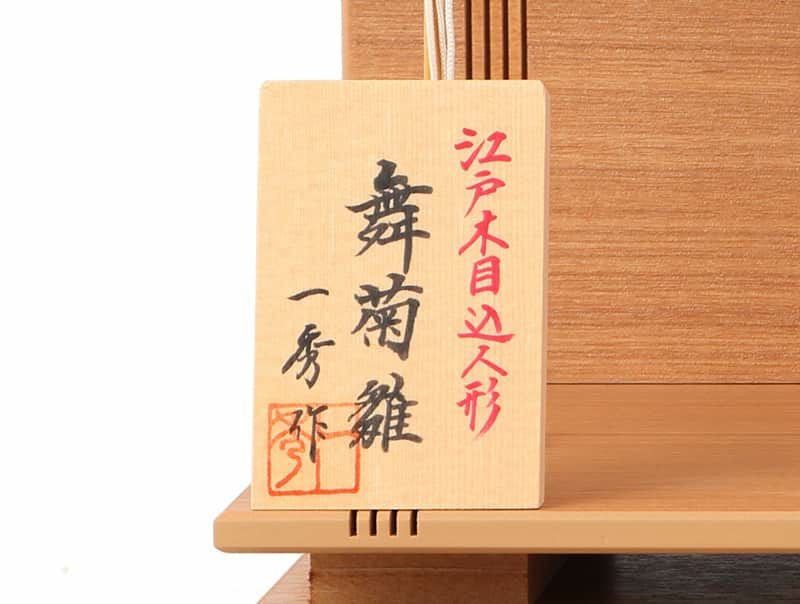 江戸木目込人形
舞菊雛
一秀作